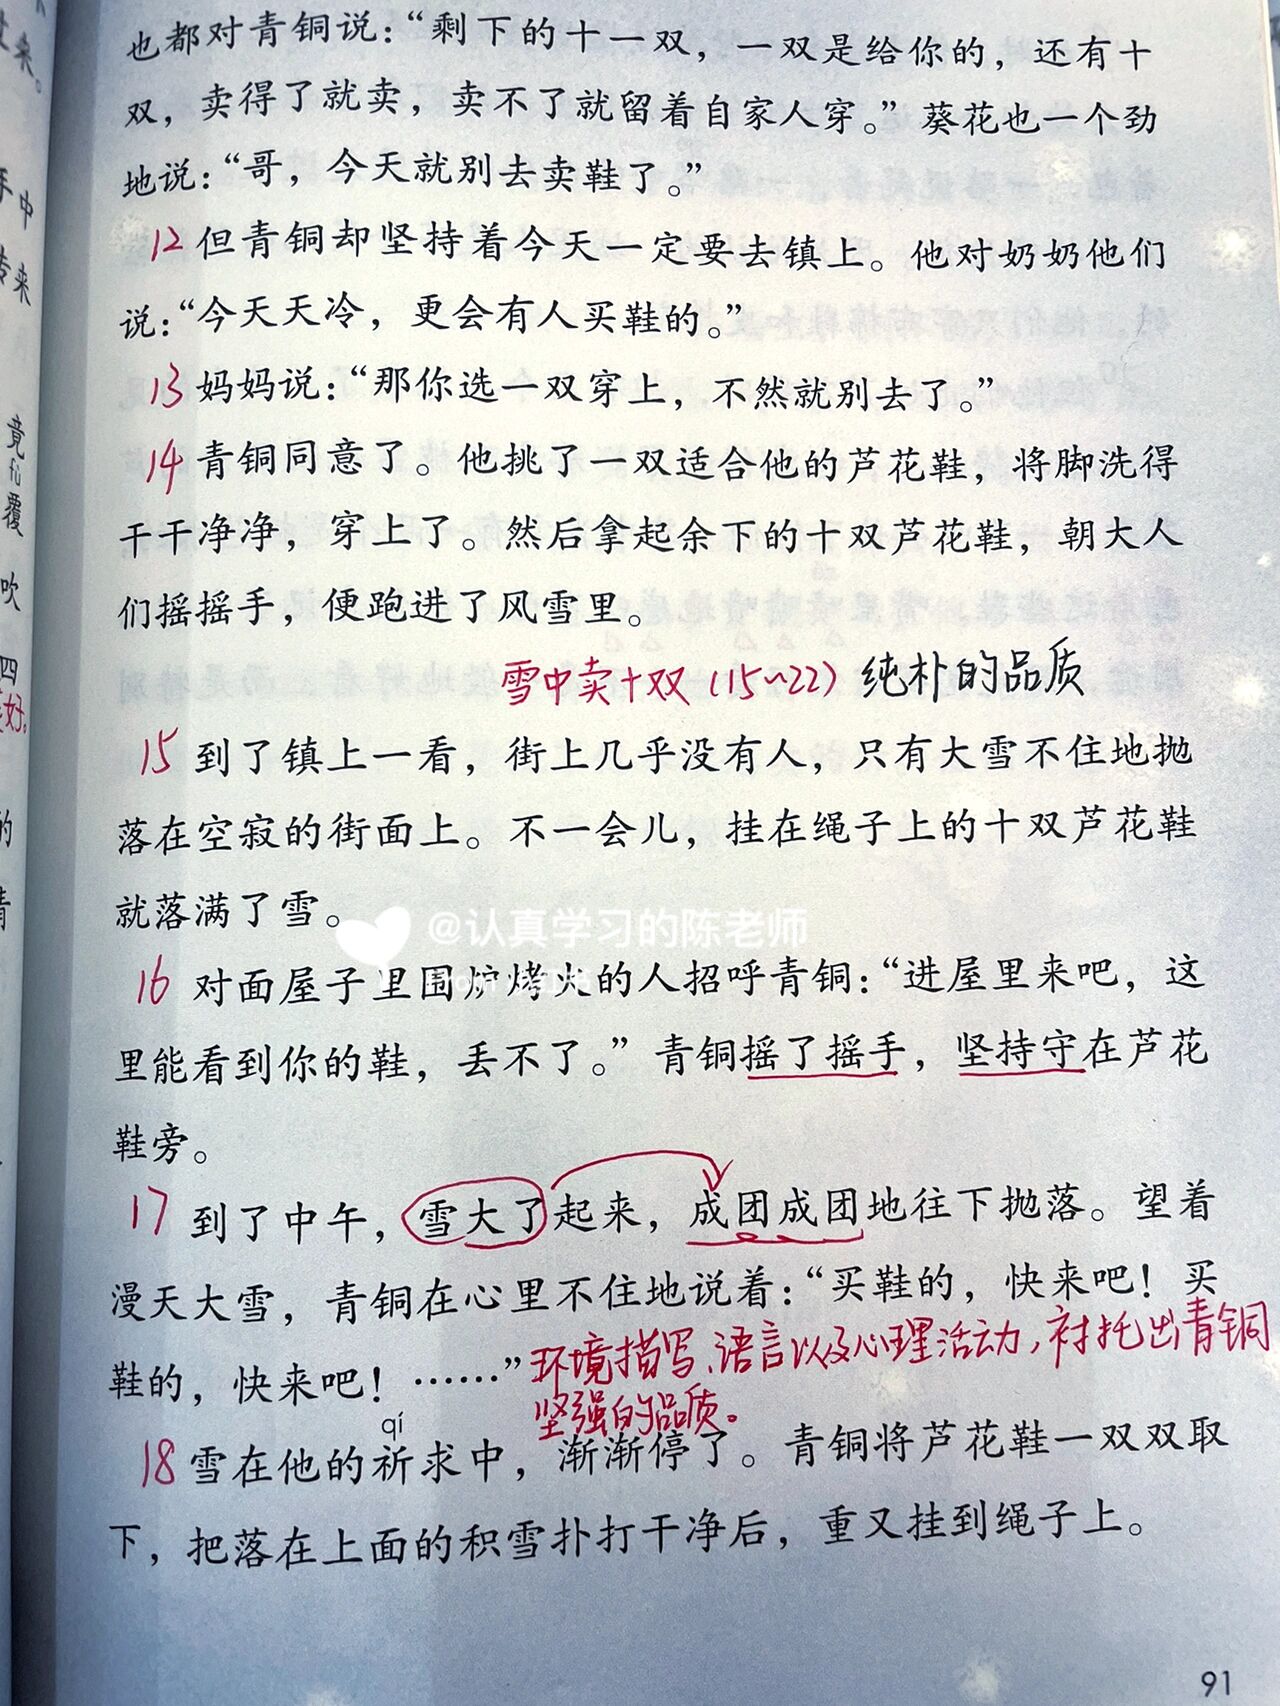 也都对青铜说：“剩下的十一双，一双是给你的，还有十
双，卖得了就卖，卖不了就留着自家人穿。”葵花也一个劲
地说：“哥，今天就别去卖鞋了。”
12 但青铜却坚持着今天一定要去镇上。他对奶奶他们
说：“今天天冷，更会有人买鞋的。”
13 妈妈说：“那你选一双穿上，不然就别去了。”
14 青铜同意了。他挑了一双适合他的芦花鞋，将脚洗得
干干净净，穿上了。然后拿起余下的十双芦花鞋，朝大人
们摇摇手，便跑进了风雪里。
雪中卖十双（15~22）纯朴的品质
15 到了镇上一看，街上几乎没有人，只有大雪不住地抛
落在空寂的街面上。不一会儿，挂在绳子上的十双芦花鞋
就落满了雪。
@认真学习的陈老师
16 对面屋子里围炉烤火的人招呼青铜：“进屋里来吧，这
里能看到你的鞋，丢不了。”青铜摇了摇手，坚持守在芦花
鞋旁。
17 到了中午，雪大了起来，成团成团地往下抛落。望着
漫天大雪，青铜在心里不住地说着：“买鞋的，快来吧！买
鞋的，快来吧！……”
环境描写、语言以及心理活动，衬托出青铜
坚强的品质。
qí
18 雪在他的祈求中，渐渐停了。青铜将芦花鞋一双双取
下，把落在上面的积雪扑打干净后，重又挂到绳子上。
91
来。
中
来
竟
fù
覆
吹
四
好。
的